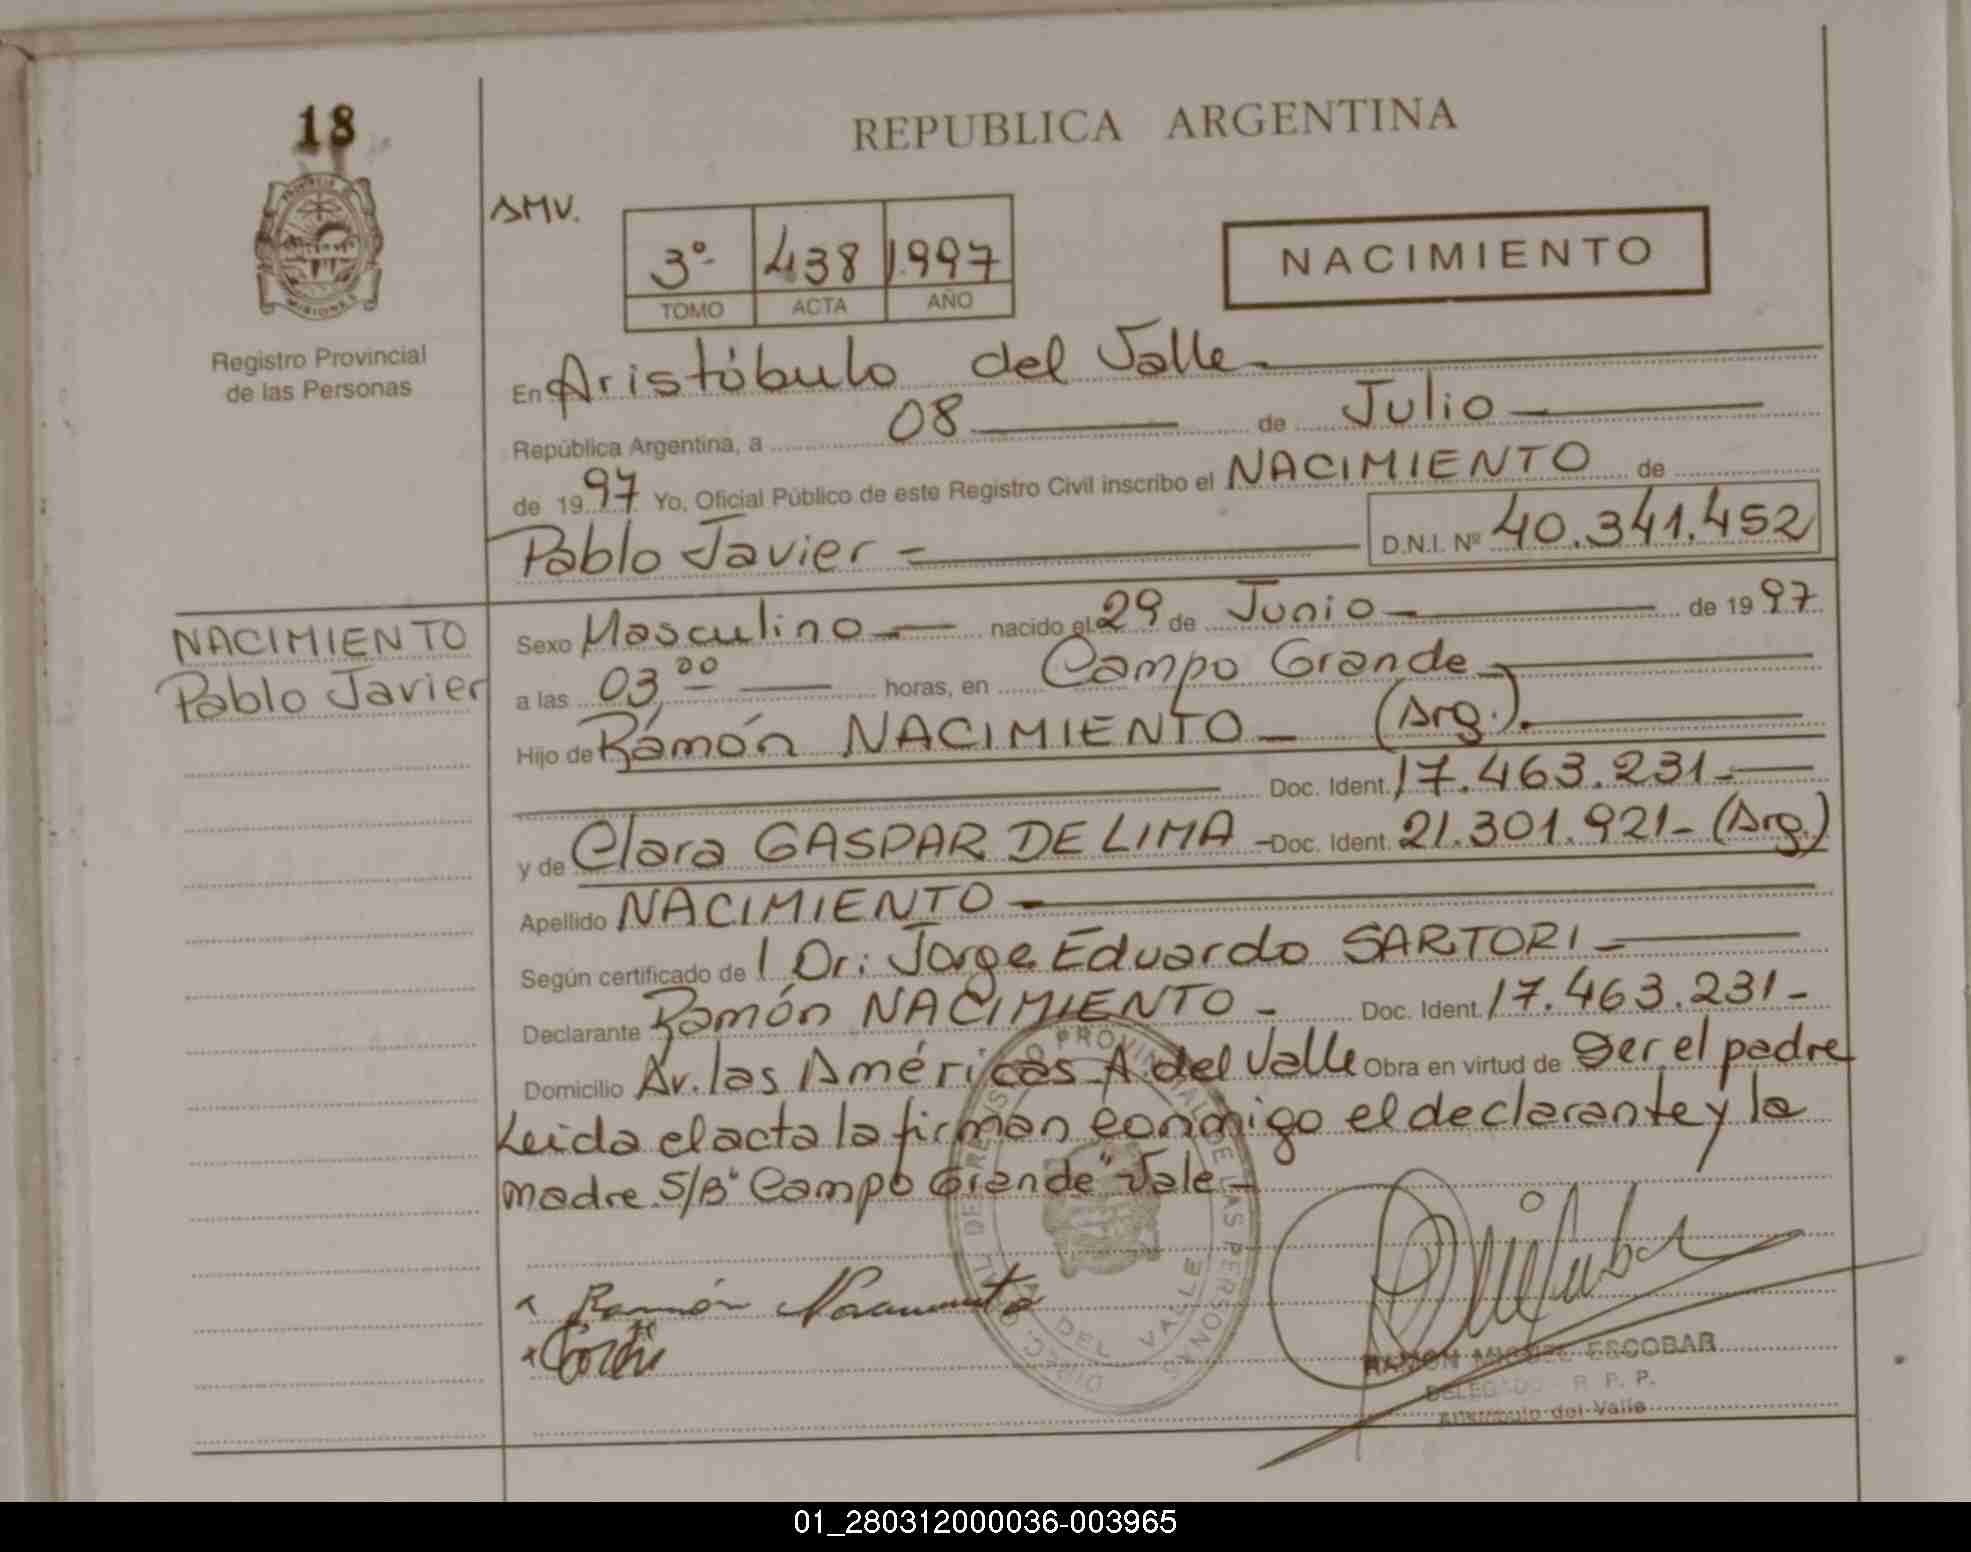 18
REPUBLICA ARGENTINA
PROVINCIA
MISIONES
Registro Provincial
de las Personas
AMV.
3º 438 1997
TOMO ACTA AÑO
NACIMIENTO
En Aristóbulo del Valle
República Argentina, a 08 de Julio
de 1997 Yo, Oficial Público de este Registro Civil inscribo el NACIMIENTO de
Pablo Javier D.N.I. Nº 40.341.452
NACIMIENTO
Pablo Javier
Sexo Masculino nacido el 29 de Junio de 1997
a las 03,00 horas, en Campo Grande
Hijo de Rámón NACIMIENTO (Arg.).
Doc. Ident. 17.463.231-
y de Clara GASPAR DE LIMA - Doc. Ident. 21.301.921- (Arg.)
Apellido NACIMIENTO
Según certificado de Dr: Jorge Eduardo SARTORI
Declarante Ramón NACIMIENTO - Doc. Ident. 17.463.231-
Domicilio Av. las Américas A. del Valle Obra en virtud de ser el padre
Leida el acta la firman conmigo el declarante y la
madre S/B "Campo Grande" Vale-
Ramón Nacimiento
RAMON MIGUEL ESCOBAR
DELEGADO R. P. P.
Aristóbulo del Valle
PROVINCIAL DE LAS PERSONAS
DEL VALLE
01_280312000036-003965